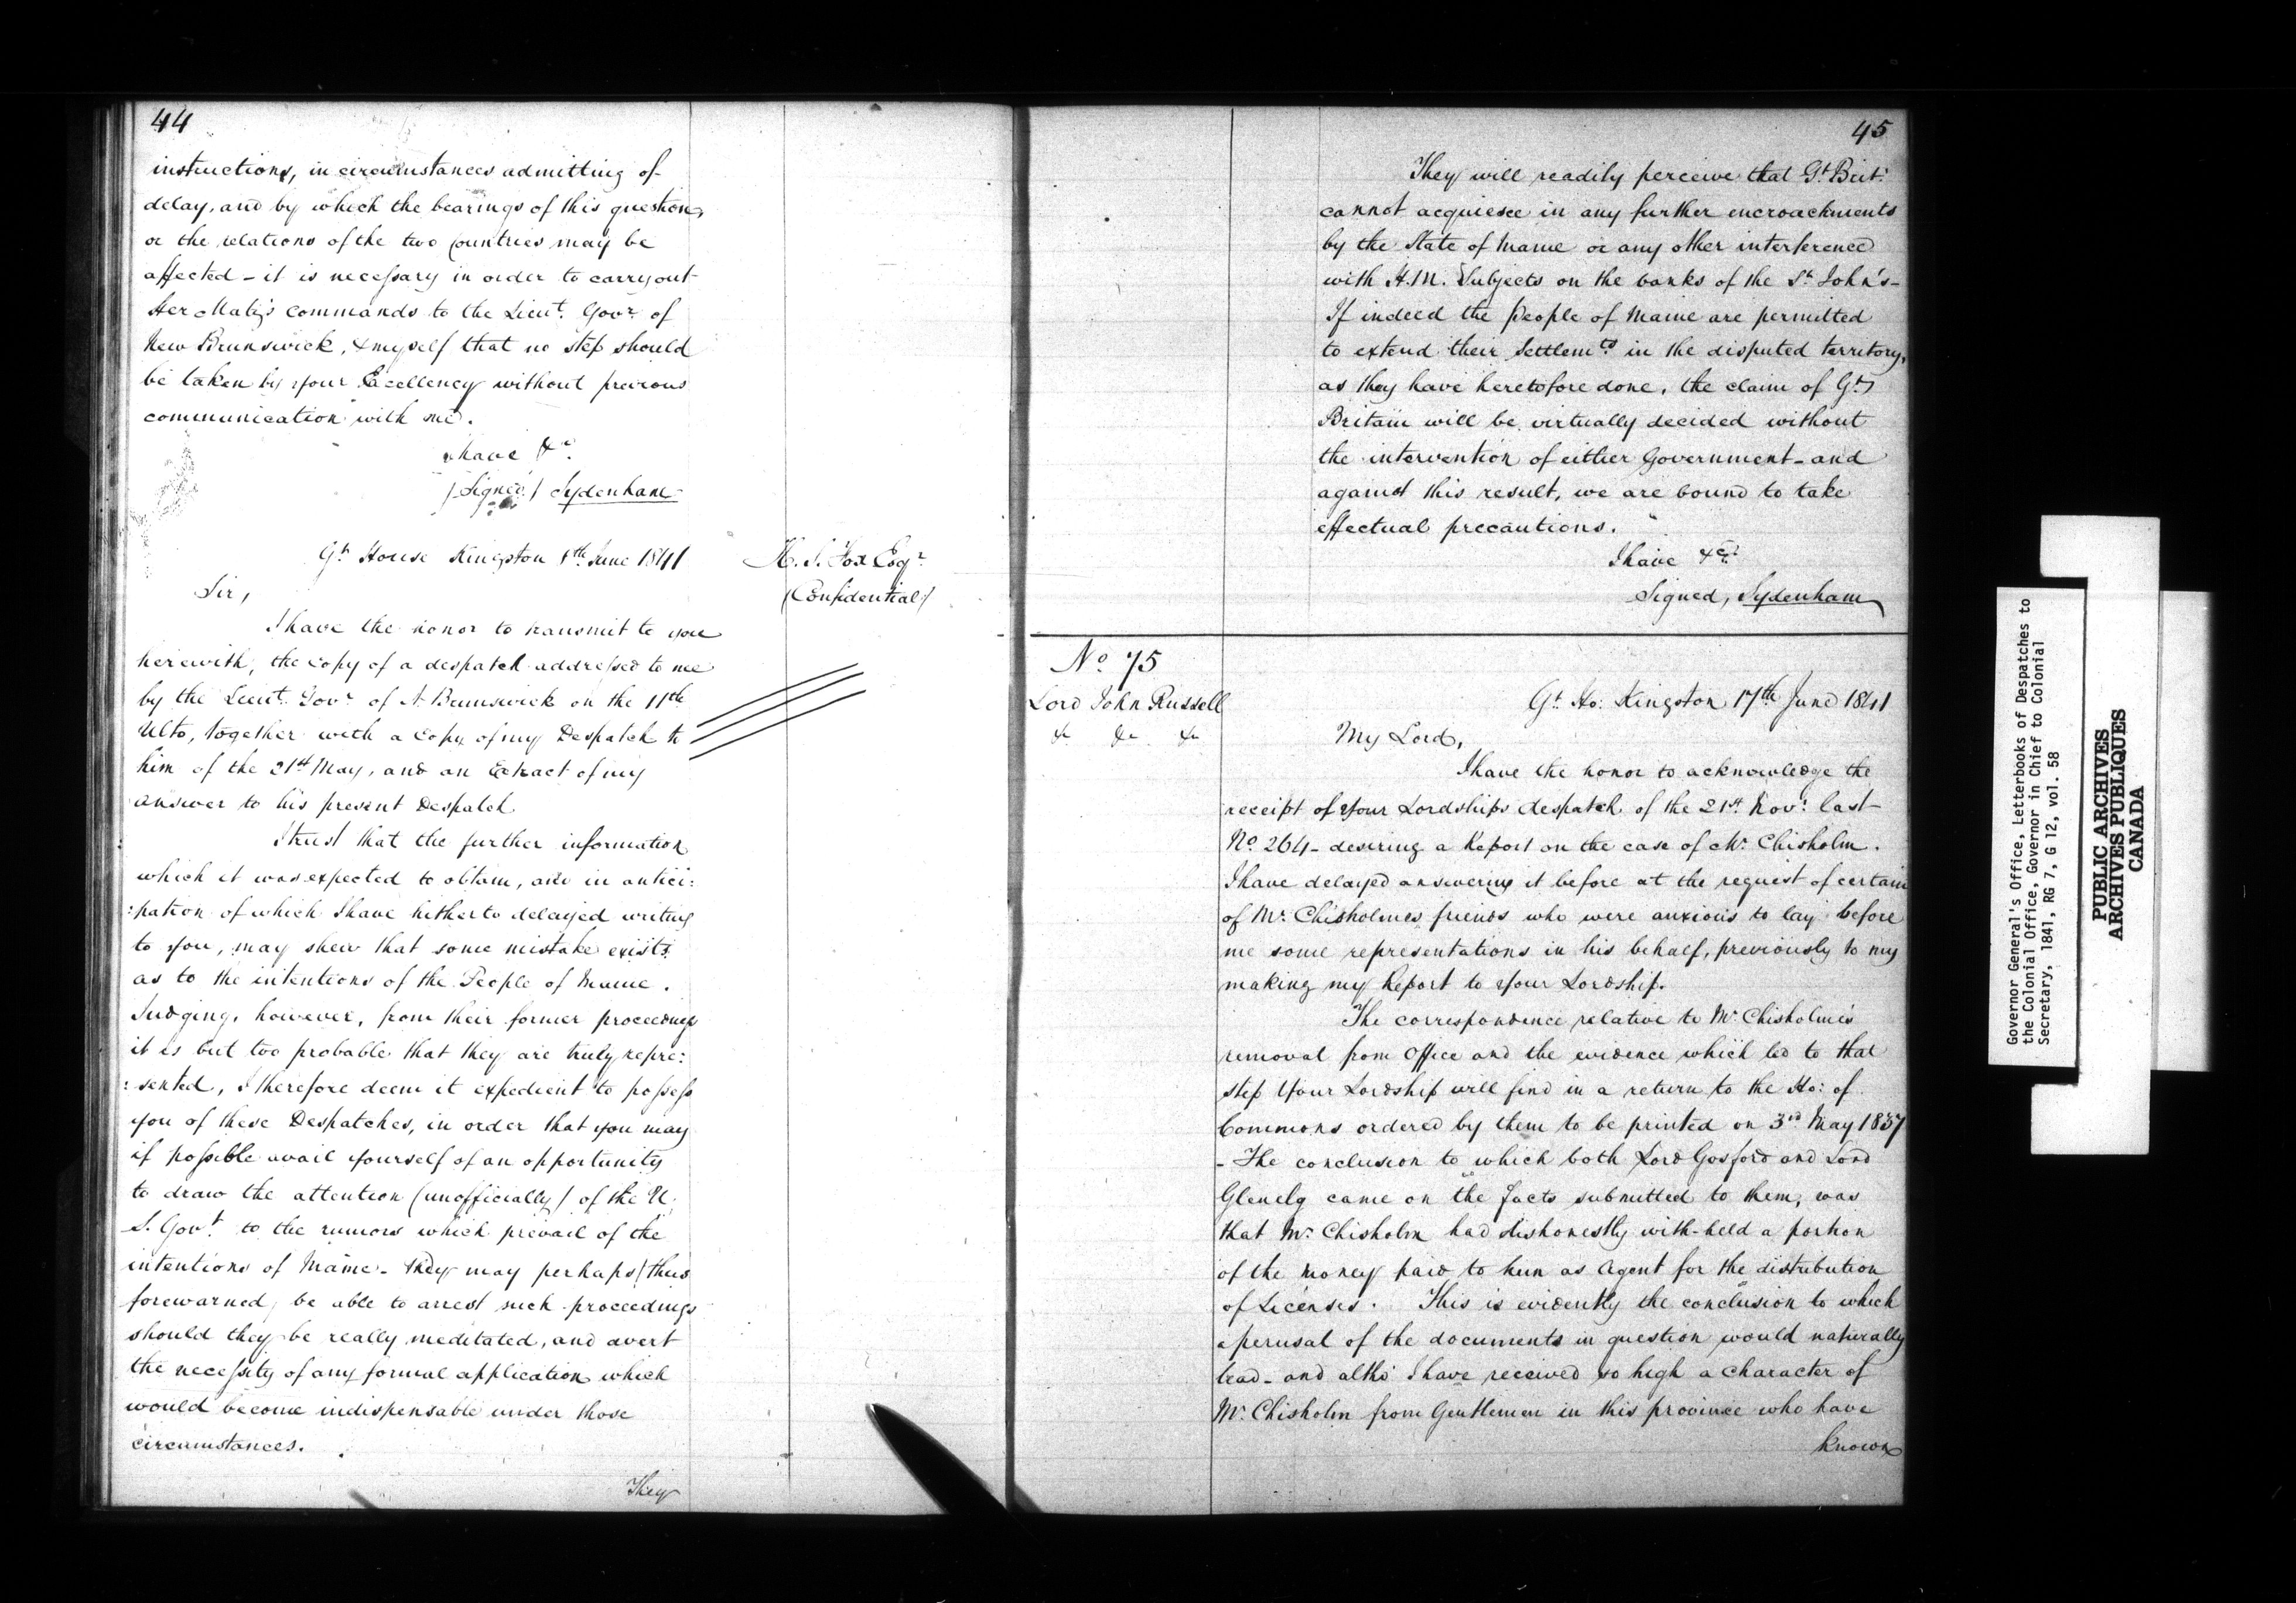 44
instructions, in circumstances admitting of
delay, and by which the bearings of this question,
or the relations of the two Countries may be
affected - it is necessary in order to carry out
Her Maty's commands to the Lieut. Govr. of
New Brunswick, & myself that no step should
be taken by your Excellency without previous
communication with me.
I have &c.
/Signed/ Sydenham
Gt. House Kingston 8th June 1841
H. S. Fox Esqr.
(Confidential)
Sir,
I have the honor to transmit to you
herewith, the copy of a despatch addressed to me
by the Lieut. Govr. of N. Brunswick on the 11th
Ulto, together with a Copy of my Despatch to
him of the 21st May, and an Extract of my
answer to his present Despatch
I trust that the further information
which it was expected to obtain, and in antici:
:pation of which I have hitherto delayed writing
to you, may shew that some mistake exists
as to the intentions of the People of Maine.
Judging, however, from their former proceedings
it is but too probable that they are truly repre:
:sented, I therefore deem it expedient to possess
you of these Despatches, in order that you may
if possible avail yourself of an opportunity
to draw the attention (unofficially) of the U.
S. Govt. to the rumors which prevail of the
intentions of Maine - they may perhaps (thus
forewarned, be able to arrest such proceedings
should they be really meditated, and avert
the necessity of any formal application which
would become indispensable under those
circumstances.
They
45
They will readily perceive that Gt. Brit:
cannot acquiesce in any further encroachments
by the State of Maine or any other interference
with H.M. Subjects on the banks of the St. John's -
If indeed the People of Maine are permitted
to extend their Settlemts. in the disputed territory,
as they have heretofore done, the claim of Gt.
Britain will be virtually decided without
the intervention of either Government - and
against this result, we are bound to take
effectual precautions.
I have &c.
Signed, Sydenham
No. 75
Lord John Russell
& &c &c
Gt. Ho: Kingston 17th June 1841
My Lord,
I have the honor to acknowledge the
receipt of your Lordships despatch of the 21st Nov: last -
No. 264 - desiring a Report on the case of Mr. Chisholm.
I have delayed answering it before at the request of certain
of Mr. Chisholmes friends who were anxious to lay before
me some representations in his behalf, previously to my
making my Report to your Lordship.
The correspondence relative to Mr. Chisholme's
removal from Office and the evidence which led to that
step Your Lordship will find in a return to the Ho: of
Commons ordered by them to be printed on 3rd May 1837
- The conclusion to which both Lord Gosford and Lord
Glenelg came on the facts submitted to them, was
that Mr. Chisholm had dishonestly with-held a portion
of the money paid to him as Agent for the distribution
of Licenses. This is evidently the conclusion to which
a perusal of the documents in question would naturally
lead - and altho' I have received so high a character of
Mr. Chisholm from Gentlemen in this province who have
known
Governor General's Office, Letterbooks of Despatches to
the Colonial Office, Governor in Chief to Colonial
Secretary, 1841, RG 7, G 12, vol. 58
PUBLIC ARCHIVES
ARCHIVES PUBLIQUES
CANADA